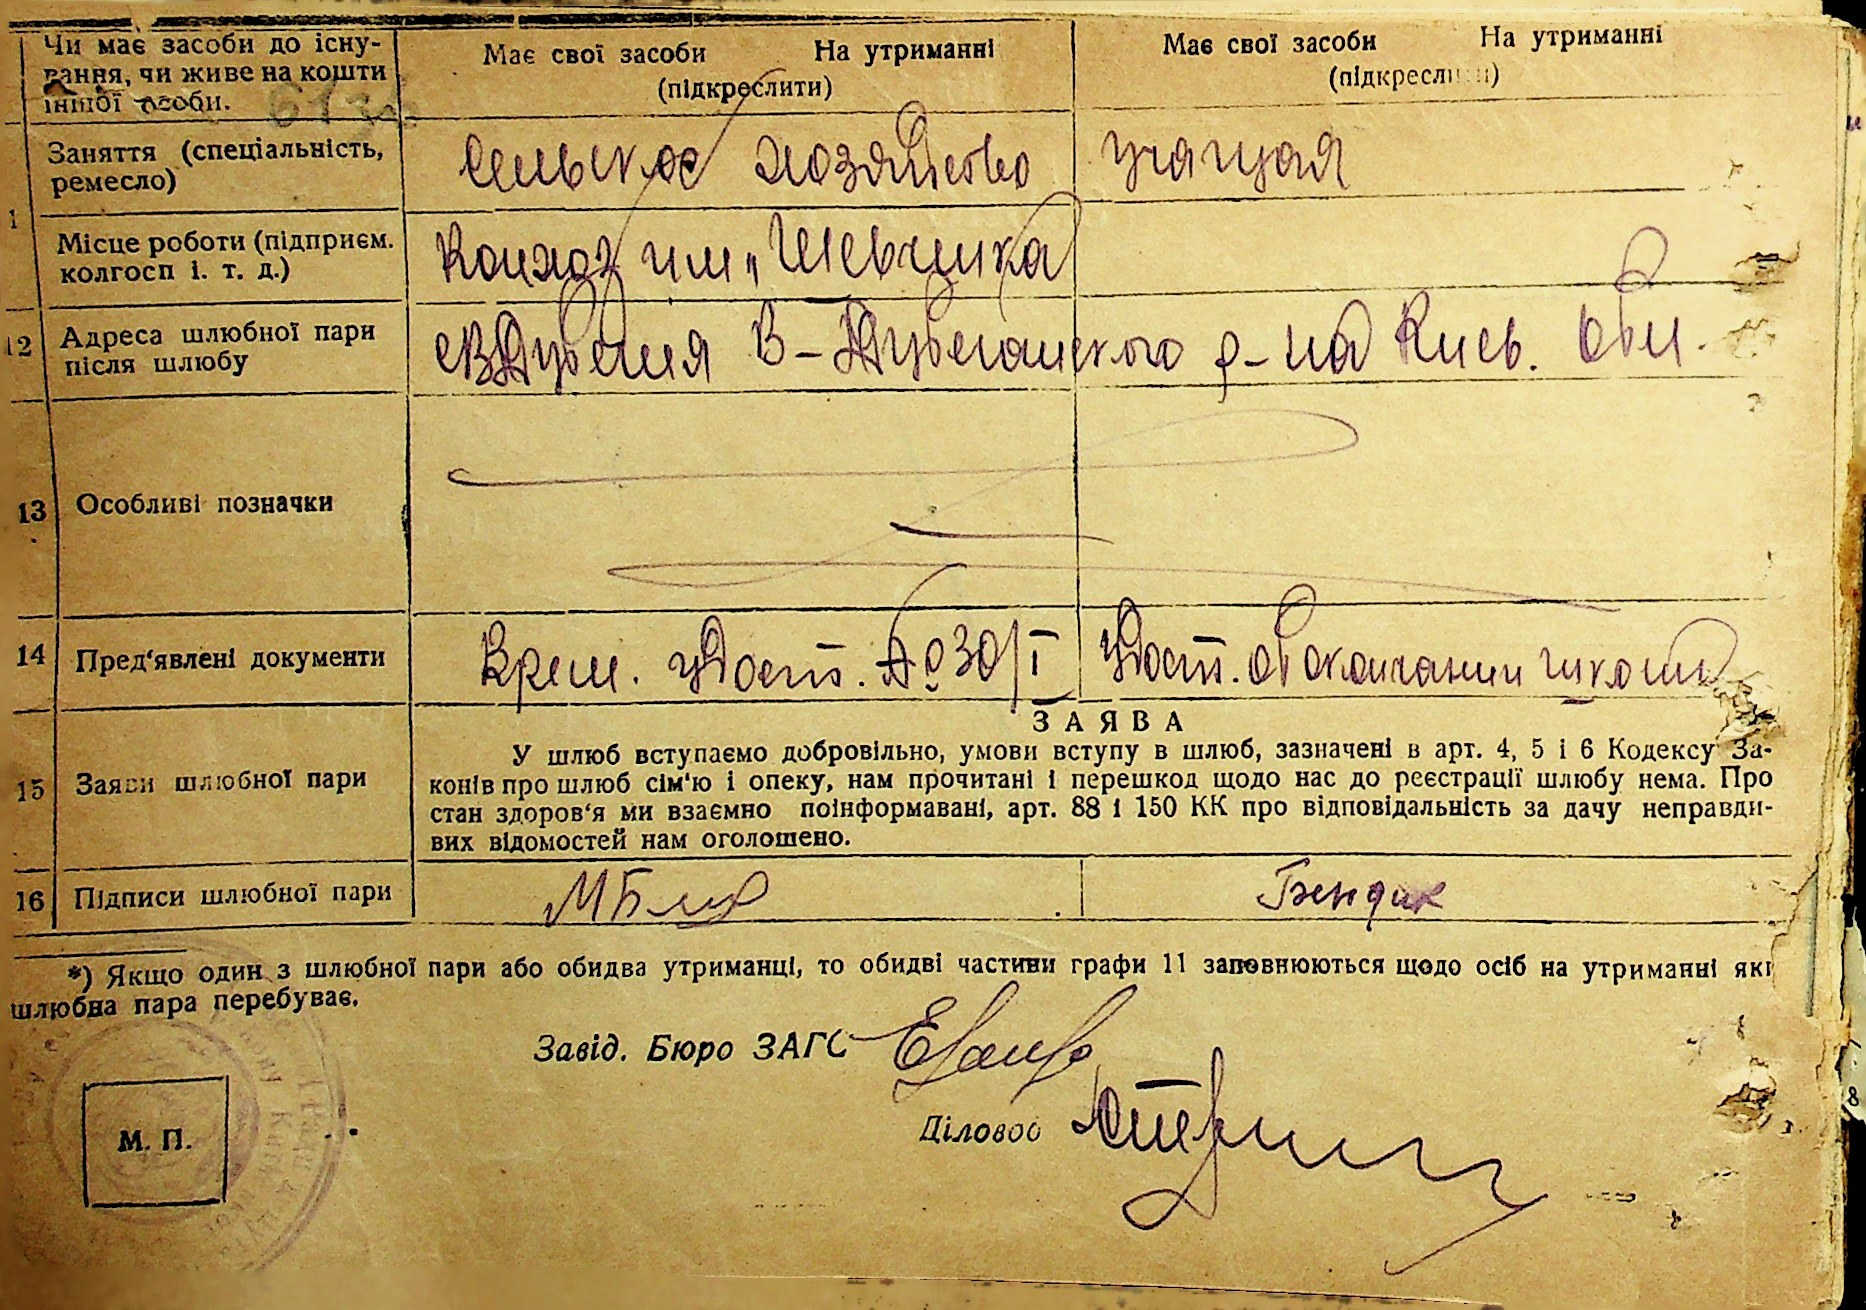 Чи має засоби до існу-
вання, чи живе на кошти
іншої особи.
Має свої засоби На утриманні
(підкреслити)
Має свої засоби На утриманні
(підкреслити)
1
Заняття (спеціальність,
ремесло)
сельское хозяйство
учащая
Місце роботи (підприєм.
колгосп і. т. д.)
Колхоз им „Шевченка
12
Адреса шлюбної пари
після шлюбу
В-Дубечанского р-на Киев. обл.
13
Особливі позначки
14
Пред'явлені документи
Врем. удост. № 30/I
Удост. об окончании школы
15
Заяви шлюбної пари
ЗАЯВА
У шлюб вступаємо добровільно, умови вступу в шлюб, зазначені в арт. 4, 5 і 6 Кодексу За-
конів про шлюб сім'ю і опеку, нам прочитані і перешкод щодо нас до реєстрації шлюбу нема. Про
стан здоров'я ми взаємно поінформавані, арт. 88 і 150 КК про відповідальність за дачу неправди-
вих відомостей нам оголошено.
16
Підписи шлюбної пари
Бендик
*) Якщо один з шлюбної пари або обидва утриманці, то обидві частини графи 11 заповнюються щодо осіб на утриманні які
шлюбна пара перебуває.
Завід. Бюро ЗАГС
Діловод
М. П.